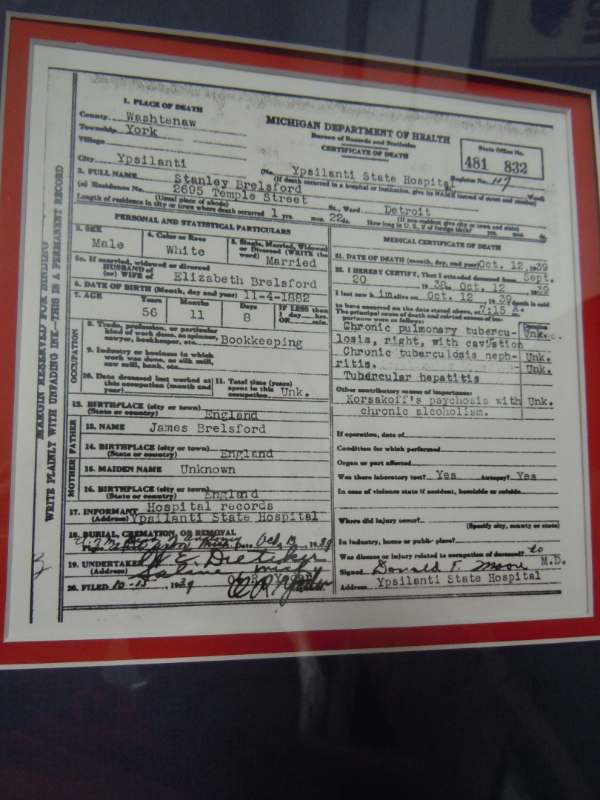 MARGIN RESERVED FOR BINDING
WRITE PLAINLY WITH UNFADING INK—THIS IS A PERMANENT RECORD
1. PLACE OF DEATH
County Washtenaw
Township York
Village
City Ypsilanti
MICHIGAN DEPARTMENT OF HEALTH
Bureau of Records and Statistics
CERTIFICATE OF DEATH
State Office No.
481 832
Register No. 117
(No. Ypsilanti State Hospital
(If death occurred in a hospital or institution, give its NAME instead of street and number)
2. FULL NAME Stanley Brelsford
(a) Residence No. 2695 Temple Street St., Ward Detroit
(Usual place of abode) (If non-resident give city or town and state)
Length of residence in city or town where death occurred 1 yrs. mos. 22 ds. How long in U. S., if of foreign birth? yrs. mos. ds.
PERSONAL AND STATISTICAL PARTICULARS
3. SEX
Male
4. Color or Race
White
5. Single, Married, Widowed or Divorced (WRITE the word)
Married
5a. If married, widowed or divorced
HUSBAND of
(or) WIFE of Elizabeth Brelsford
6. DATE OF BIRTH (Month, day and year) 11-4-1882
7. AGE Years Months Days IF LESS than
56 11 8 1 day
OCCUPATION
8. Trade, profession, or particular
kind of work done, as spinner,
sawyer, bookkeeper, etc. Bookkeeping
9. Industry or business in which
work was done, as silk mill,
saw mill, bank, etc.
10. Date deceased last worked at
this occupation (month and
year)
11. Total time (years)
spent in this
occupation Unk.
12. BIRTHPLACE (city or town)
(State or country) England
FATHER
13. NAME James Brelsford
14. BIRTHPLACE (city or town)
(State or country) England
MOTHER
15. MAIDEN NAME Unknown
16. BIRTHPLACE (city or town)
(State or country) England
17. INFORMANT Hospital records
(Address) Ypsilanti State Hospital
18. BURIAL, CREMATION, OR REMOVAL
Date Oct. 1939
19. UNDERTAKER
(Address) Saline Mich
20. FILED 10-13 1939
MEDICAL CERTIFICATE OF DEATH
21. DATE OF DEATH (month, day, and year) Oct. 12, 39
22. I HEREBY CERTIFY, That I attended deceased from Sept.
20 1938, Oct. 12 39
I last saw him alive on Oct. 12 39, death is said
to have occurred on the date stated above, at 7:15 A.
The principal cause of death and related causes of importance were as follows:
Chronic pulmonary tubercu- Unk.
losis, right, with cavitation
Chronic tuberculosis neph- Unk.
ritis. Unk.
Tubercular hepatitis
Other contributory causes of importance:
Korsakoff's psychosis with Unk.
chronic alcoholism.
If operation, date of
Condition for which performed
Organ or part affected
Was there laboratory test? Yes Autopsy? Yes
In case of violence state if accident, homicide or suicide
Where did injury occur?
(Specify city, county or state)
In industry, home or public place?
Was disease or injury related to occupation of deceased? no
Signed Donald F. Moore M.D.
Address Ypsilanti State Hospital